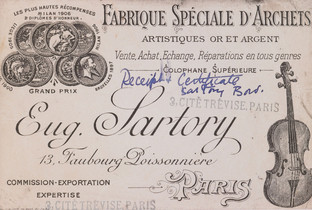 LES PLUS HAUTES RÉCOMPENSES
MILAN 1906
2 DIPLÔMES D'HONNEUR
GRAND PRIX
FABRIQUE SPÉCIALE D'ARCHETS
ARTISTIQUES OR ET ARGENT
Vente, Achat, Echange, Réparations en tous genres
COLOPHANE SUPÉRIEURE
Receipt & Certificate
Sartory Bow.
3, CITÉ TRÉVISE, PARIS
Eug. Sartory
13, Faubourg Poissonnière
3, CITÉ TRÉVISE, PARIS
PARIS
COMMISSION-EXPORTATION
EXPERTISE